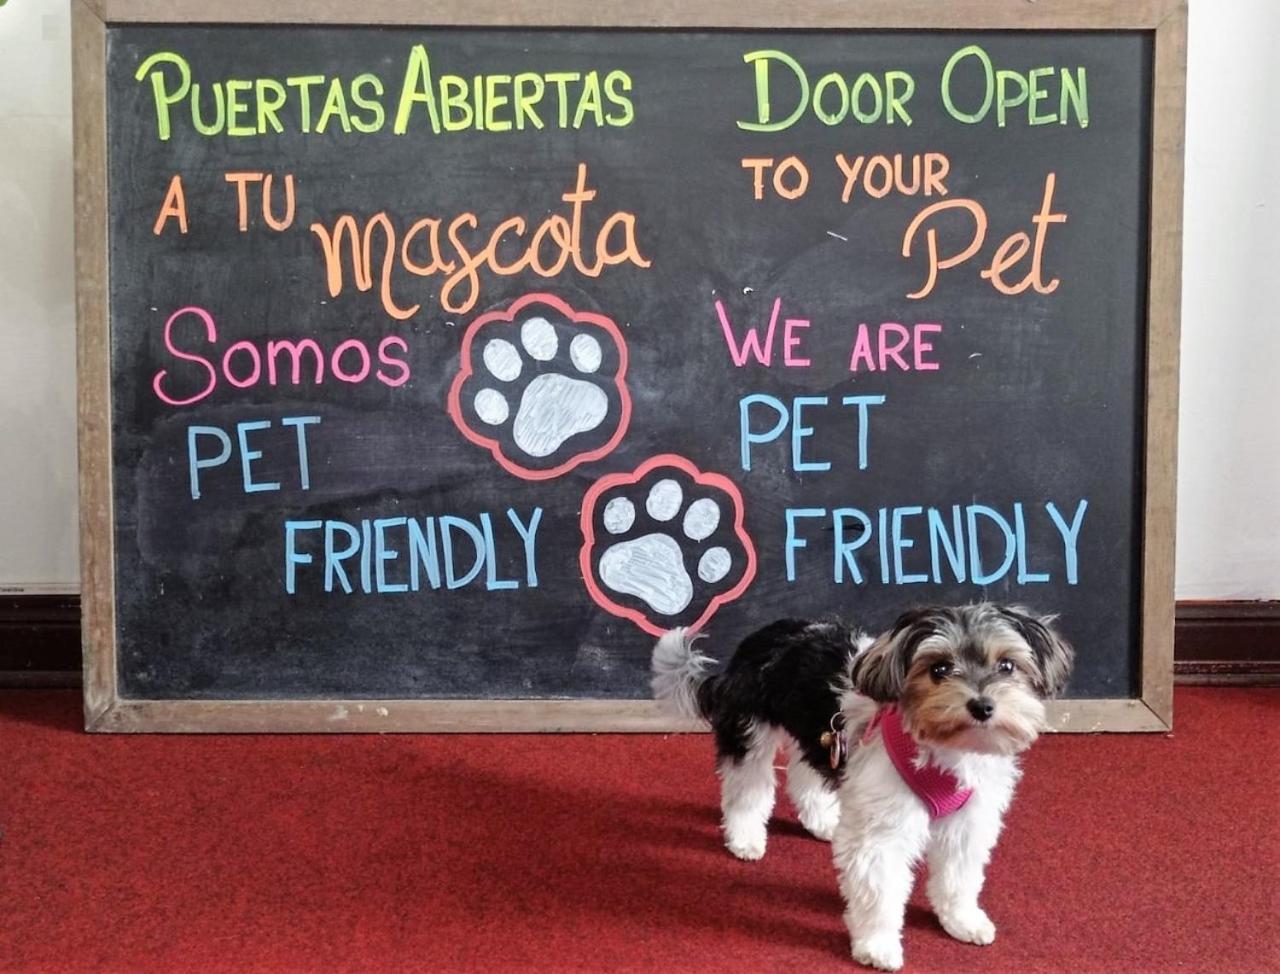 PUERTAS ABIERTAS
A TU mascota
SOMOS
PET
FRIENDLY
DOOR OPEN
TO YOUR
Pet
WE ARE
PET
FRIENDLY